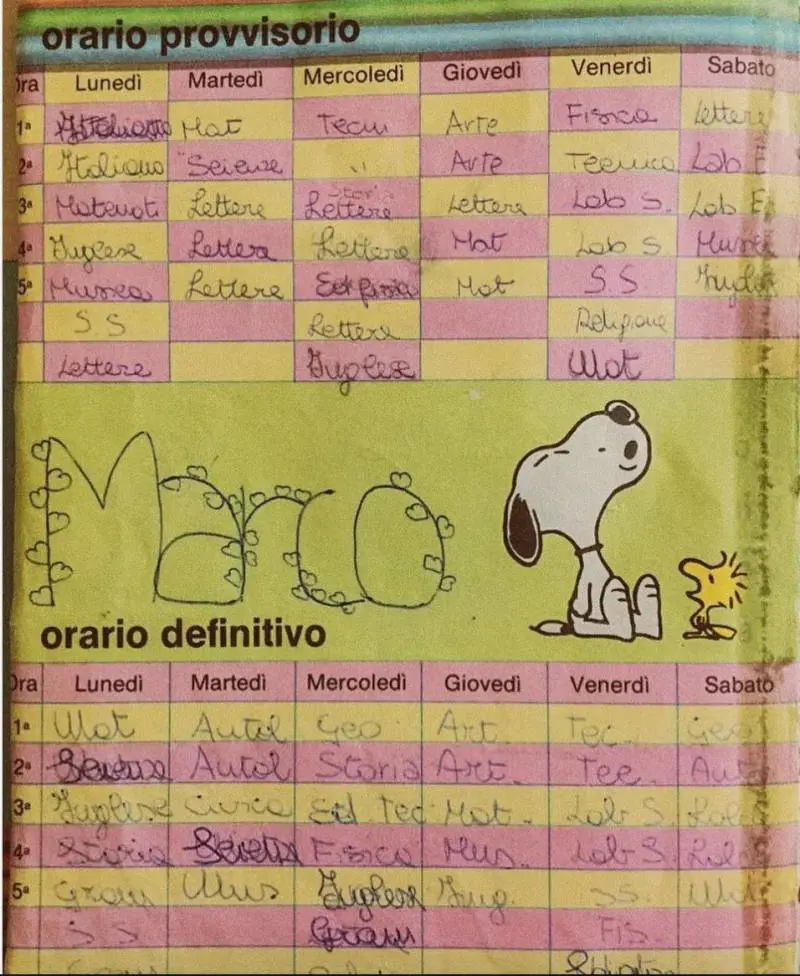 orario provvisorio
Ora Lunedì Martedì Mercoledì Giovedì Venerdì Sabato
1ª Italiano Mat Tecn Arte Fisica Lettere
2ª Italiano Scienze " Arte Tecnica Lab E
3ª Matemat Lettere Storia Lettere Lettere Lab S. Lab E
4ª Inglese Lettere Lettere Mat Lab S Musica
5ª Musica Lettere Ed fisica Mat S S Ingle
S S Lettere Religione
Lettere Inglese Mat
Marco
orario definitivo
Ora Lunedì Martedì Mercoledì Giovedì Venerdì Sabato
1ª Mat Antol Geo Art. Tec. Geo
2ª Scienze Antol Storia Art. Tec. Ant
3ª Inglese Civica Ed Tec Mat. Lab S. Lab
4ª Storia Fisica Mus. Lab S. Lab
5ª Gram Mus Inglese Ing. SS. Mat
S S Gram Fis.